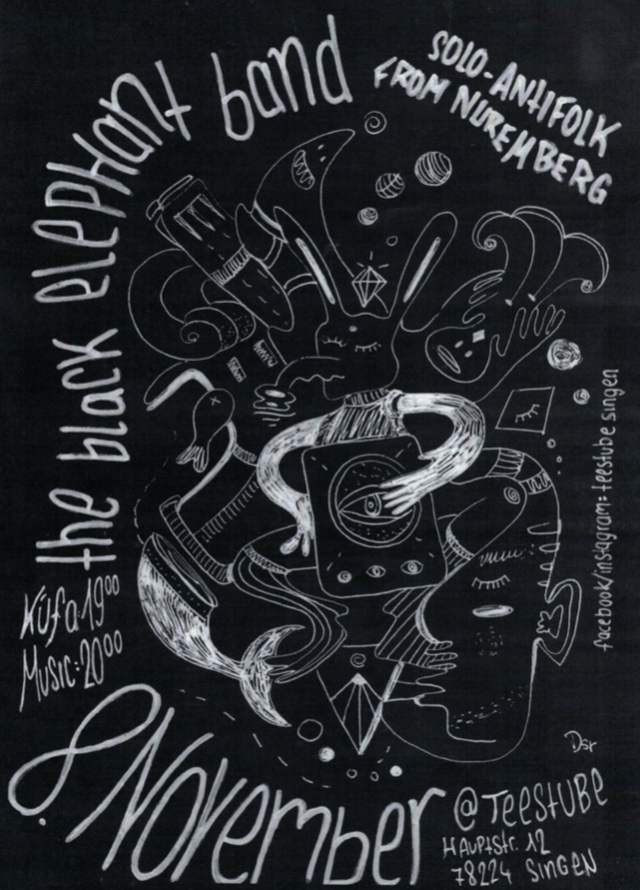 the black elephant band
SOLO-ANTIFOLK
FROM NUREMBERG
facebook/instagram: teestube singen
Küfa: 19⁰⁰
Music: 20⁰⁰
8. November
@ TEESTUBE
HAUPTSTR. 12
78224 SINGEN
Dsr